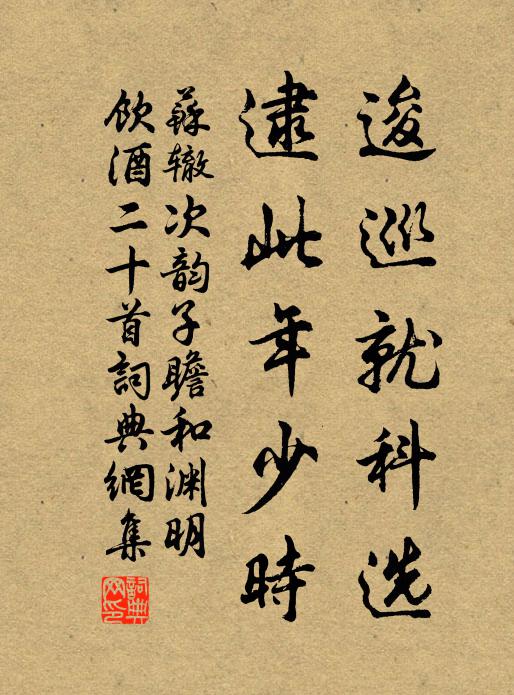 逡巡就科选
逮此年少時
蘇辙次韵子瞻和渊明
飲酒二十首詞典網集
詞典
网印